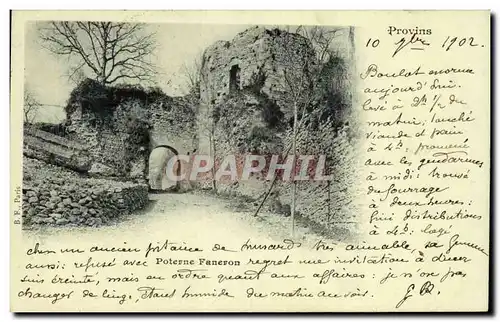 Provins
10 9bre 1902.
Boulot énorme
levé à 2h 1/2 du
matin, touché
viande et pain
à 4h: promené
avec les gendarmes
à midi: trouvé
du fourrage
à deux heures:
fini distributions
à 4h: logé
chez un ancien capitaine de hussards très aimable, sa femme
aussi: refusé avec regret une invitation à dîner
suis éreinté, mais en ordre quant aux affaires: je n'ose pas
changer de linge, étant humide du matin au soir.
Poterne Faneron
B. F., Paris
CPARHAMA